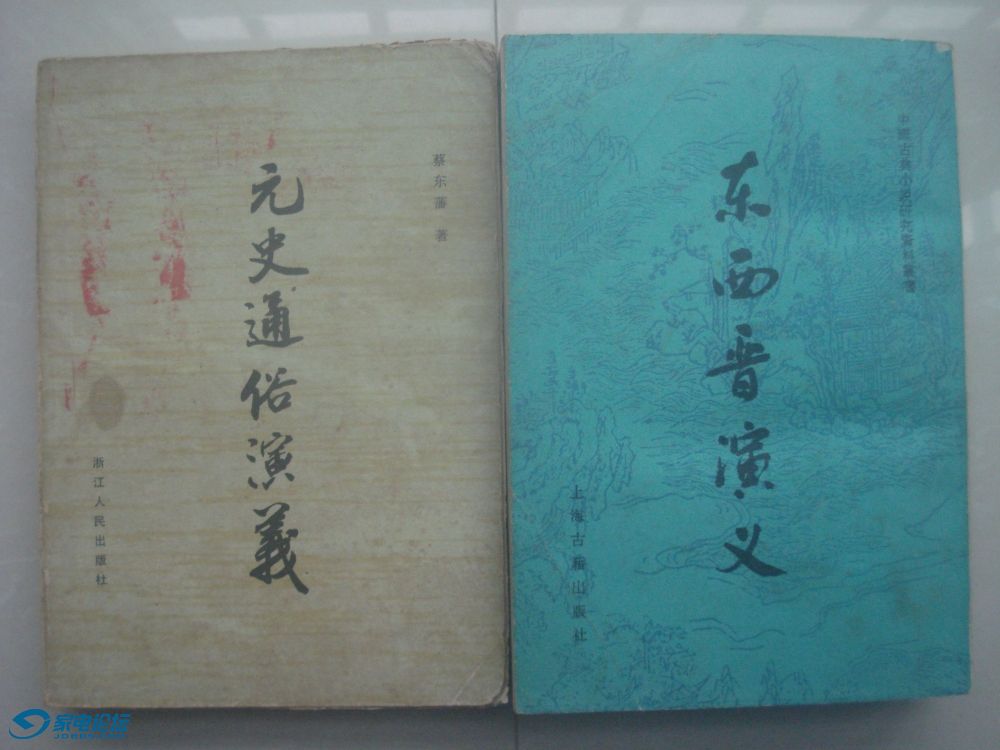 元史通俗演義
蔡东藩 著
浙江人民出版社
东西晋演义
中國古典小説研究資料叢書
上海古籍出版社
家电论坛
JDBBS.COM